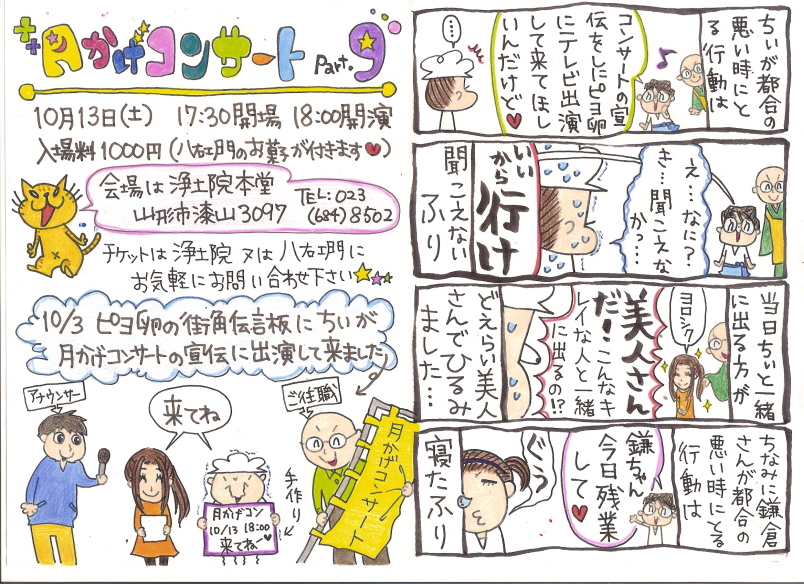 月かげコンサート Part.9
10月13日(土) 17:30開場 18:00開演
入場料1000円(八右エ門のお菓子が付きます♥)
会場は浄土院本堂
山形市漆山3097
TEL:023
(684)8502
チケットは浄土院又は八右エ門に
お気軽にお問い合わせ下さい
10/3 ピヨ卵の街角伝言板にちいが
月かげコンサートの宣伝に出演して来ました
アナウンサー
来てね
ご住職
手作り
月かげコン
10/13 18:00
来てねー♥
月かげコンサート
ちいが都合の
悪い時にと
る行動は
コンサートの宣
伝をしにピヨ卵
にテレビ出演
して来てほし
いんだけど♥
…
え…なに?
き…聞こえな
かっ…
いいから
行け
聞こえない
ふり
当日ちいと一緒
に出る方が
ヨロシク!
美人さん
だ!こんなキ
レイな人と一緒
に出るの!?
どえらい美人
さんでひるみ
ました…
ちなみに鎌倉
さんが都合の
悪い時にとる
行動は
鎌ちゃん
今日残業
して♥
ぐぅ
寝たふり